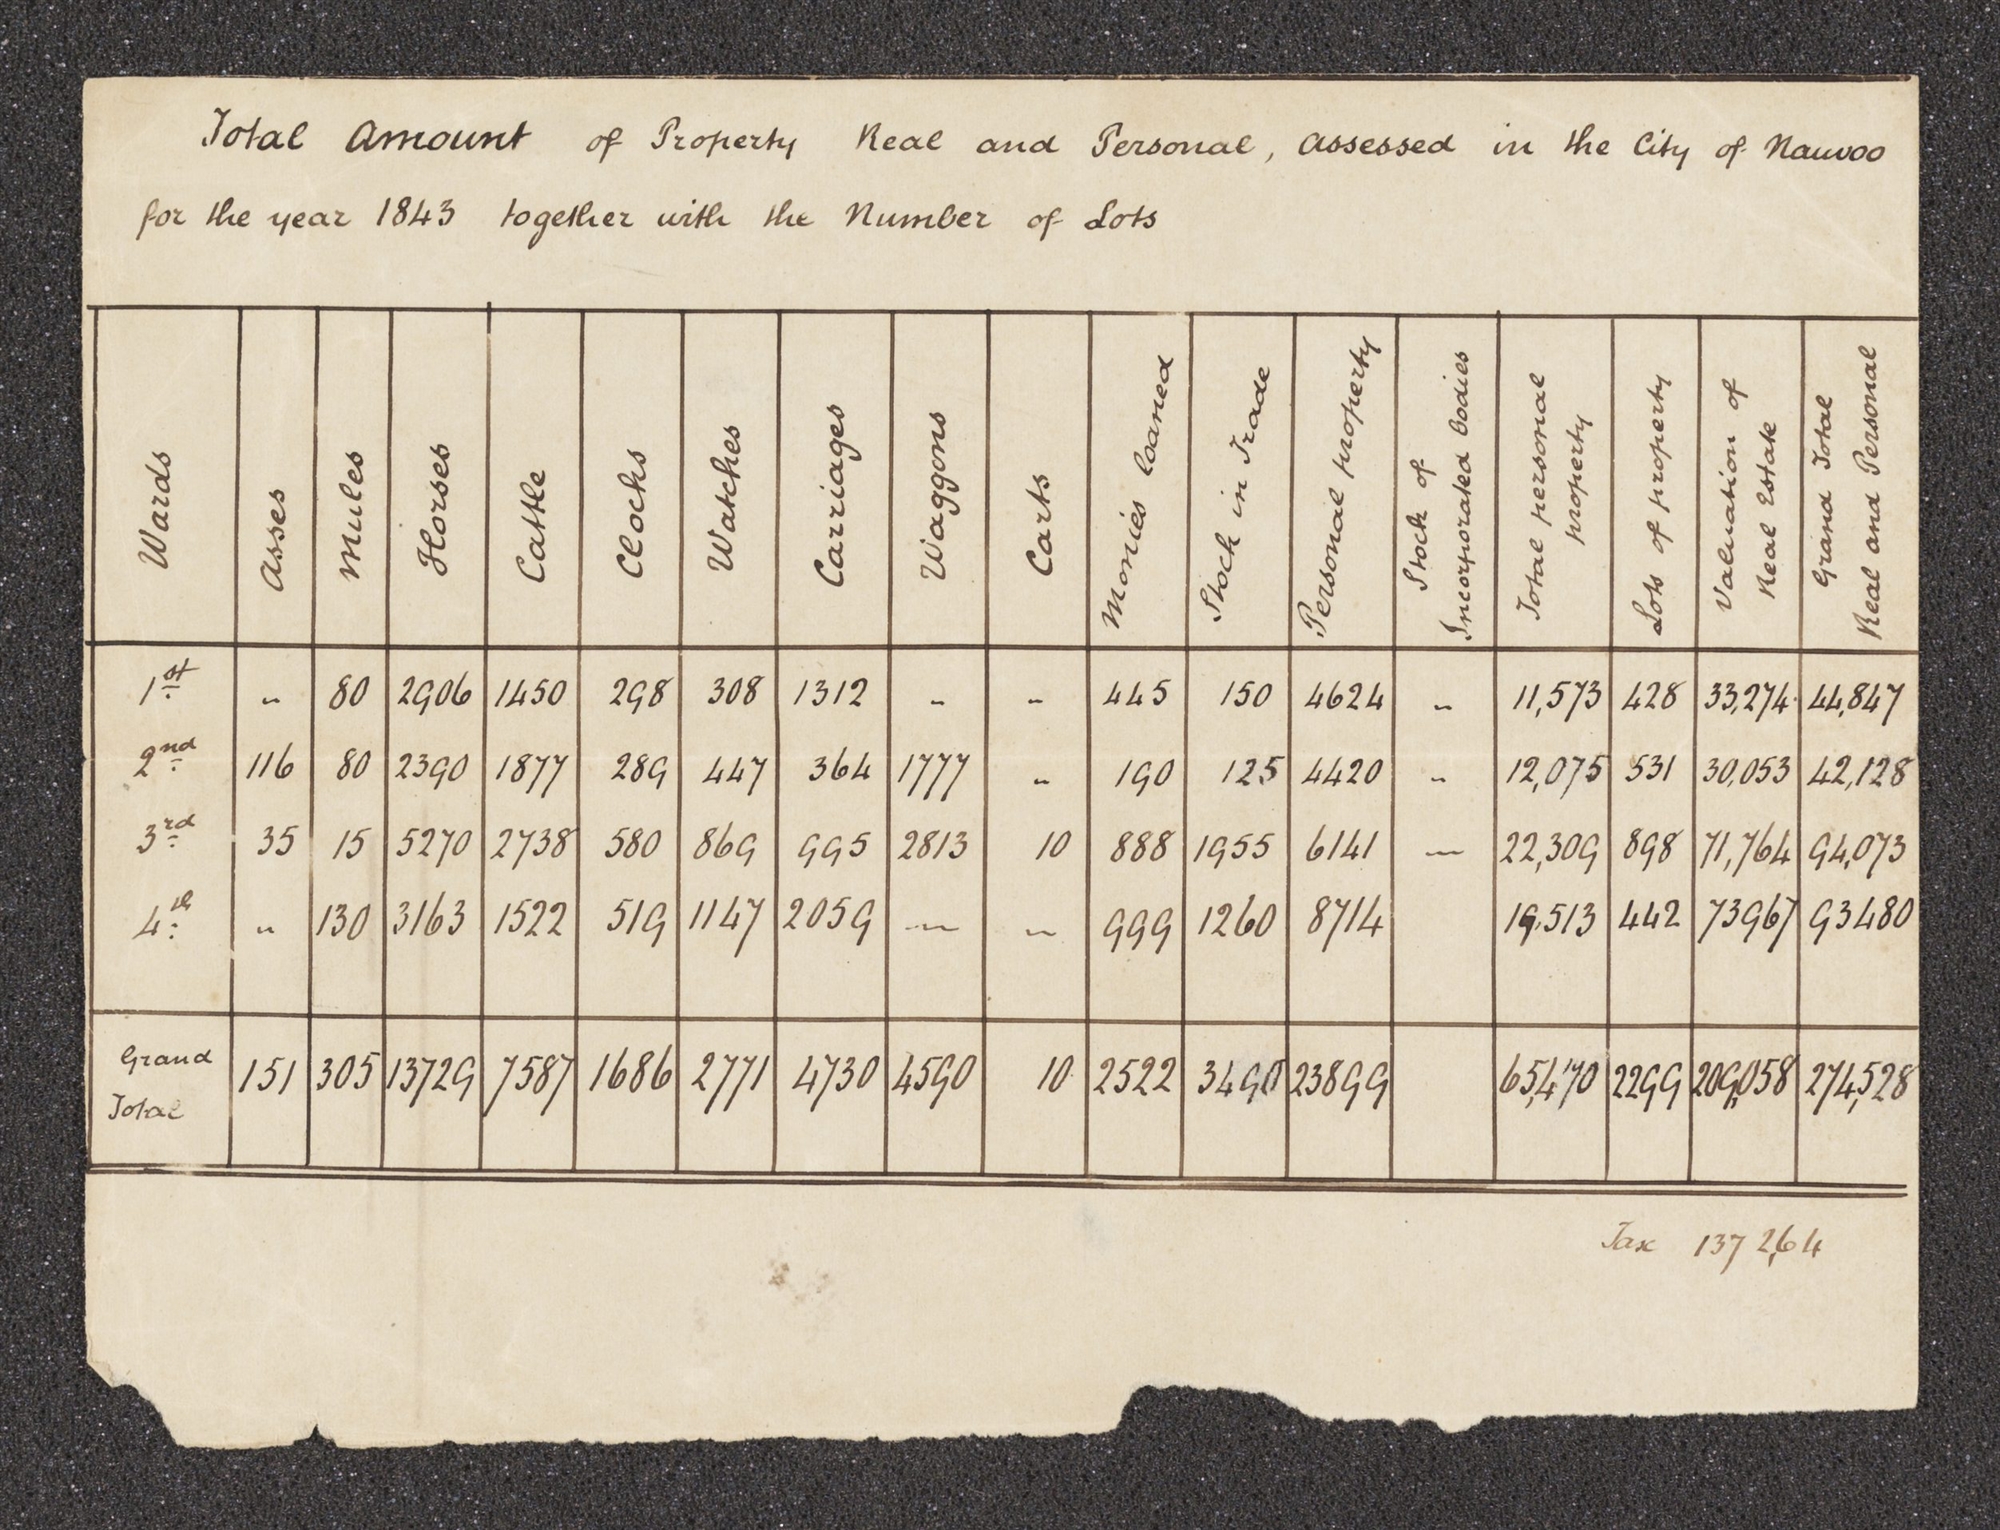 Total Amount of Property Real and Personal, assessed in the City of Nauvoo
for the year 1843 together with the Number of Lots
Wards Asses Mules Horses Cattle Clocks Watches Carriages Waggons Carts Monies loaned Stock in Trade Personal property Stock of Incorporated bodies Total personal property Lots of property Valuation of Real Estate Grand Total Real and Personal
1st „ 80 2906 1450 298 308 1312 „ „ 445 150 4624 „ 11,573 428 33,274 44,847
2nd 116 80 2390 1877 289 447 364 1777 „ 190 125 4420 „ 12,075 531 30,053 42,128
3rd 35 15 5270 2738 580 869 995 2813 10 888 1955 6141 — 22,309 898 71,764 94,073
4th „ 130 3163 1522 519 1147 2059 — „ 999 1260 8714 19,513 442 73967 93480
Grand Total 151 305 13729 7587 1686 2771 4730 4590 10 2522 3490 23899 65,470 2299 209,058 274,528
Tax 137 2,64